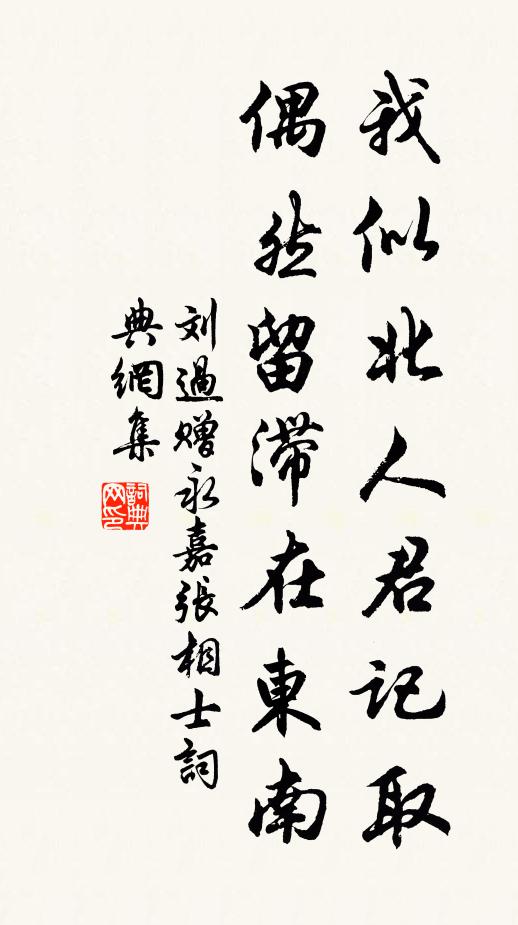 我似北人君记取
偶然留滯在東南
刘過赠永嘉張相士詞
典網集
詞典网印